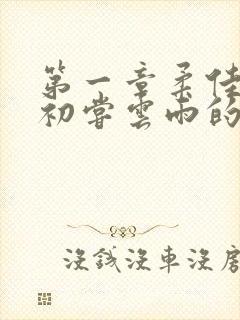 第一章柔佳
初尝云雨的
没钱没车没房